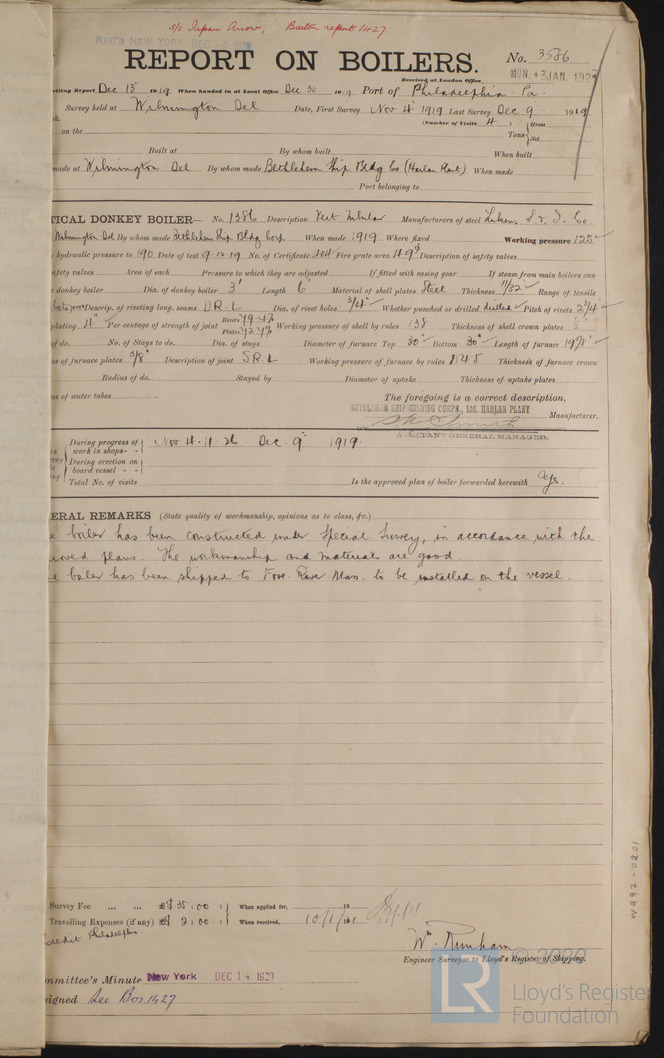 s/s Japan Arrow, Boston report 1427.
REC'D NEW YORK DEC
REPORT ON BOILERS.
No. 3586
Received at London Office
MON. 3 JAN. 192
riting Report Dec 13 1919 When handed in at Local Office Dec 30 1919 Port of Philadelphia Pa.
Survey held at Wilmington Del Date, First Survey Nov 4 1919 Last Survey Dec 9 1919
(Number of Visits 4)
on the
Tons { Gross
Net
Built at By whom built When built
made at Wilmington Del By whom made Bethlehem Ship Bldg Co (Harlan Plant) When made
Port belonging to
TICAL DONKEY BOILER— No. 1386 Description Vert Tubular Manufacturers of steel Lukens S. & I. Co.
Wilmington Del By whom made Bethlehem Ship Bldg Corp When made 1919 Where fixed Working pressure 125
hydraulic pressure to 190 Date of test 9-12-19 No. of Certificate 404 Fire grate area 4.9 Description of safety valves
afety valves Area of each Pressure to which they are adjusted If fitted with easing gear If steam from main boilers can
donkey boiler Dia. of donkey boiler 3' Length 6' Material of shell plates Steel Thickness 11/32" Range of tensile
Descrip. of riveting long. seams D.R.L Dia. of rivet holes 3/4" Whether punched or drilled drilled Pitch of rivets 2 3/4"
plating 4" Per centage of strength of joint Rivets 79.47 Plates 72.7% Working pressure of shell by rules 138 Thickness of shell crown plates
of do. No. of Stays to do. Dia. of stays Diameter of furnace Top 30" Bottom 30" Length of furnace 19 7/8"
ss of furnace plates 3/8" Description of joint S.R.L Working pressure of furnace by rules 1845 Thickness of furnace crown
Radius of do. Stayed by Diameter of uptake Thickness of uptake plates
ss of water tubes
The foregoing is a correct description.
BETHLEHEM SHIPBUILDING CORPN., LTD. HARLAN PLANT
Manufacturer.
ASSISTANT GENERAL MANAGER.
During progress of work in shops - - Nov 4. 11. 26. Dec. 9 1919.
During erection on board vessel - -
Total No. of visits
Is the approved plan of boiler forwarded herewith Yes.
ERAL REMARKS (State quality of workmanship, opinions as to class, &c.)
e boiler has been constructed under Special Survey, in accordance with the
roved plans. The workmanship and materials are good.
e boiler has been shipped to Fore River Mass. to be installed on the vessel.
W992-0201
Survey Fee ... ... $ 35:00 : When applied for, 19
Travelling Expenses (if any) $ 2:00 : When received, 10/1/21
credit Philadelphia
Engineer Surveyor to Lloyd's Register of Shipping.
mmittee's Minute New York DEC 14 1920
signed See Bos 1427
© 2020
LR
Lloyd's Register
Foundation